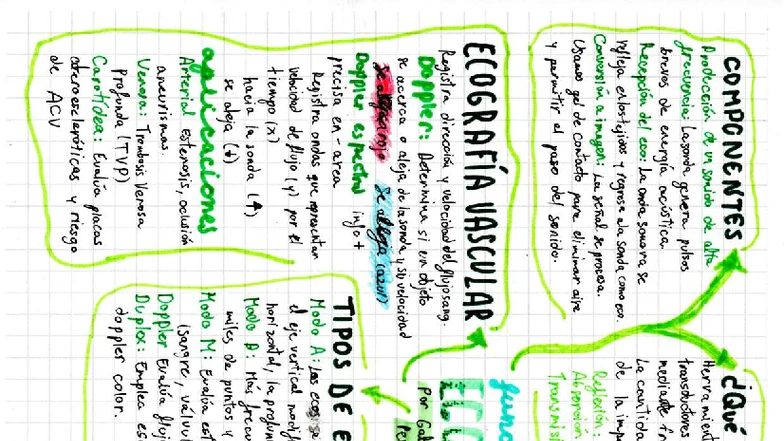 COMPONENTES
Producción de un sonido de alta
frecuencia: La sonda genera pulsos
breves de energía acústica.
Recepción del eco: La onda sonora se
refleja en los tejidos y regresa a la sonda como eco
Conversión a imagen: La señal se procesa.
Usamos gel de contacto para eliminar aire
y permitir el paso del sonido.
ECOGRAFÍA VASCULAR
Registra dirección y velocidad del flujo sang.
Doppler: Determina si un objeto
se acerca o aleja de la sonda y su velocidad
Se aleja (azul)
Doppler espectral info +
precisa en - area
Registra ondas que representan
velocidad de flujo (y) por el
tiempo (x)
hacia la sonda (↑)
se aleja (↓)
aplicaciones
Arterial Estenosis, oclusión
aneurismas.
Venosa: Trombosis Venosa
Profunda (TVP)
Carotídea: Evalúa placas
ateroescleróticas y riesgo
de ACV
¿Qué
Herramien
transductores
mediante
La cantida
de la imp
Reflexión
Absorción
Transmis
func
Por
TIPOS DE E
Modo A: Las ecos se
el eje vertical
horizontal, la profun
Modo B: Más frecu
miles de puntos y
Modo M: Evalúa est
(sangre, válvu
Doppler Evalúa fluj
Duplex: Emplea es
doppler color.